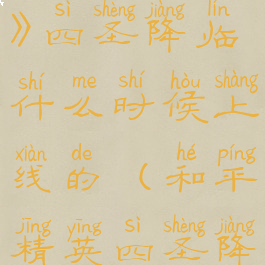 sì shèng jiàng lín
》四圣降临
shí me shí hòu shàng
什么时候上
xiàn de hé píng
线的（和平
jīng yīng sì shèng jiàng
精英四圣降